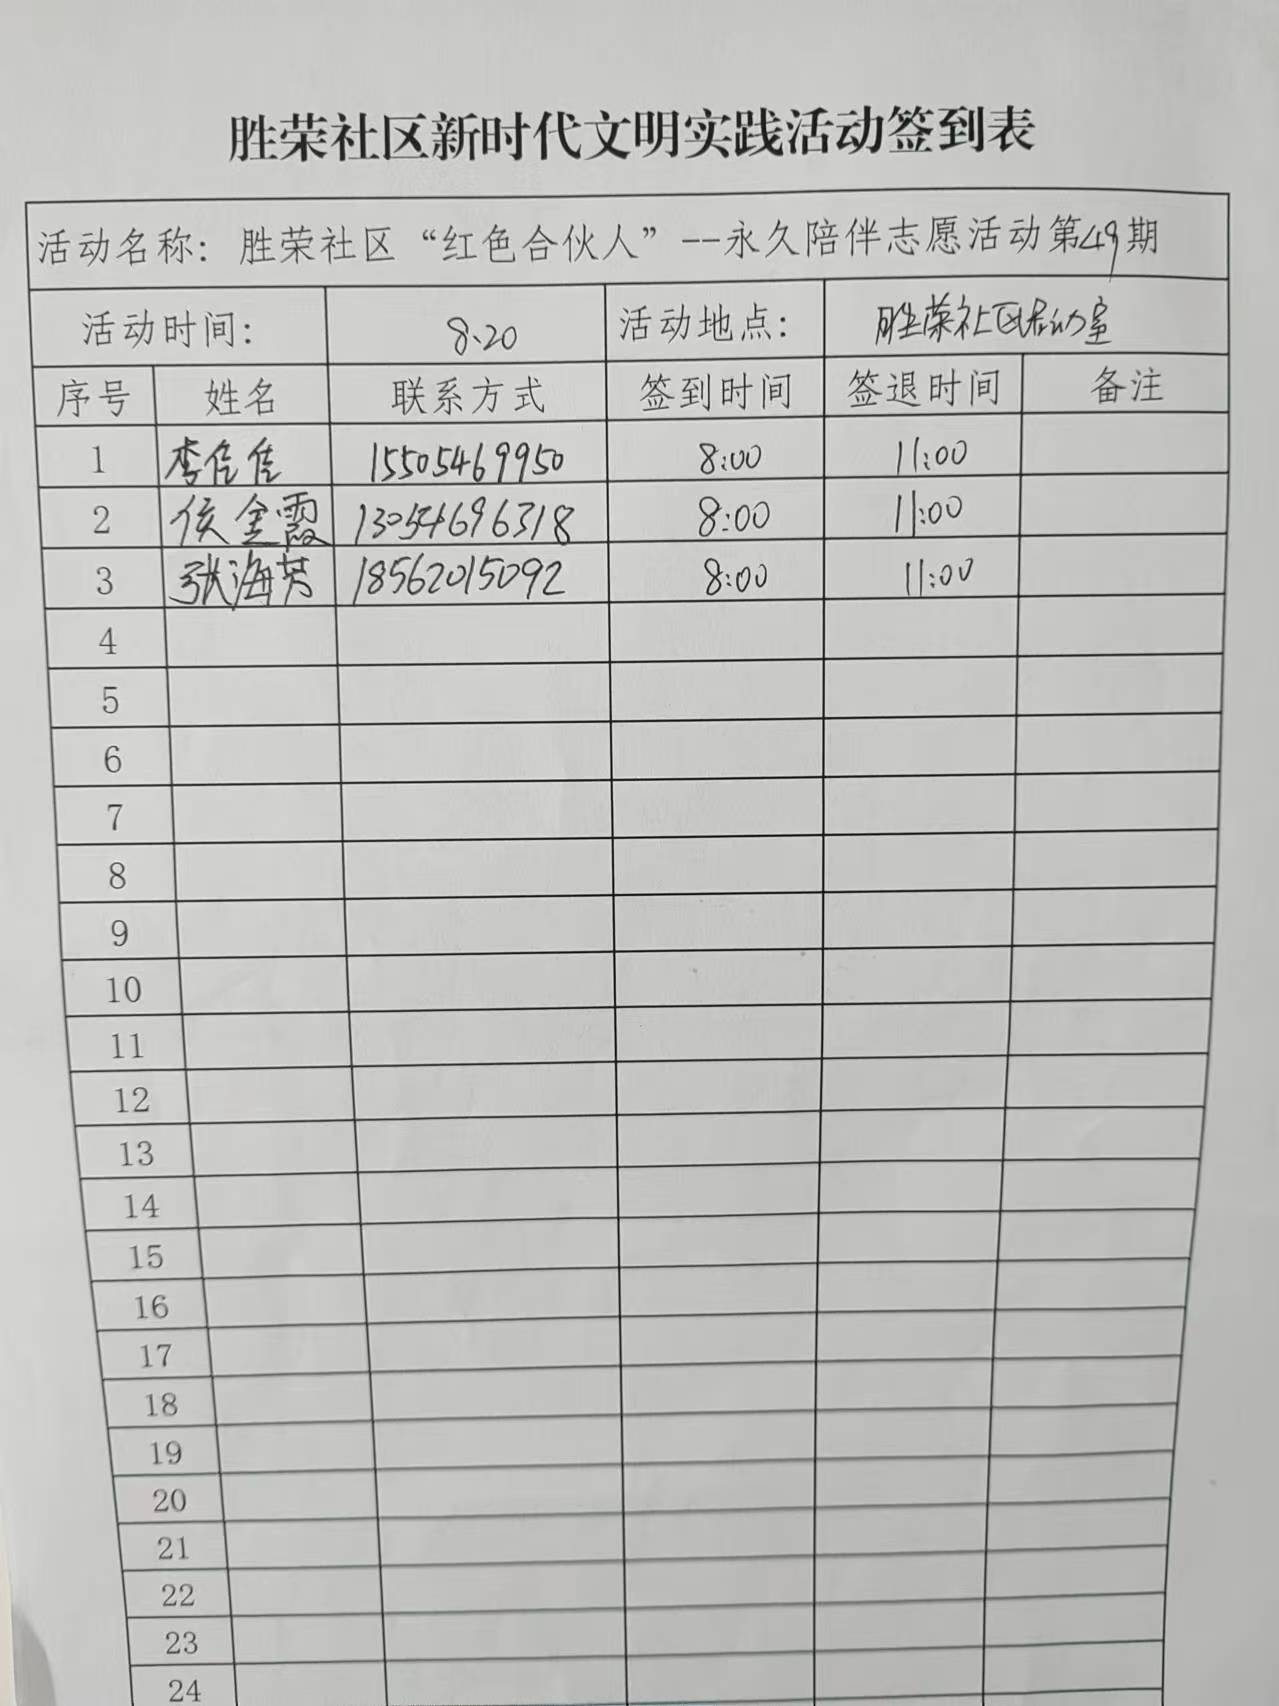 胜荣社区新时代文明实践活动签到表
活动名称：胜荣社区“红色合伙人”--永久陪伴志愿活动第49期
活动时间： 8.20 活动地点： 胜荣社区活动室
序号 姓名 联系方式 签到时间 签退时间 备注
1 李佳佳 15505469950 8:00 11:00
2 侯金霞 13054696318 8:00 11:00
3 张海芳 18562015092 8:00 11:00
4
5
6
7
8
9
10
11
12
13
14
15
16
17
18
19
20
21
22
23
24